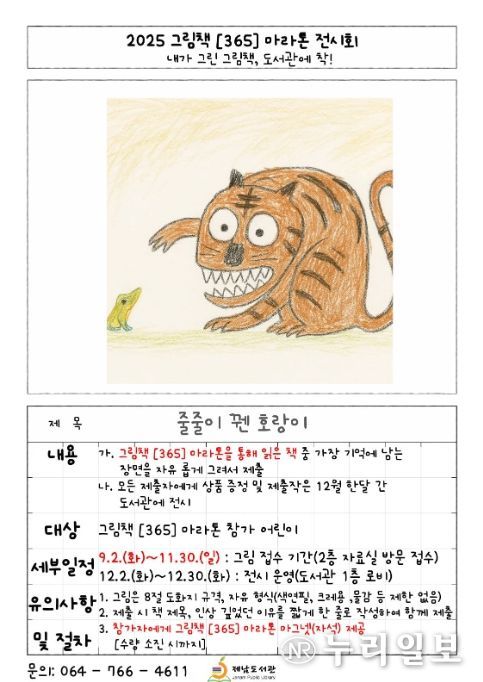 2025 그림책 [365] 마라톤 전시회
내가 그린 그림책, 도서관에 착!
제 목 줄줄이 꿴 호랑이
내용 가. 그림책 [365] 마라톤을 통해 읽은 책 중 가장 기억에 남는
장면을 자유 롭게 그려서 제출
나. 모든 제출자에게 상품 증정 및 제출작은 12월 한달 간
도서관에 전시
대상 그림책 [365] 마라톤 참가 어린이
세부일정 9.2.(화)~11.30.(일) : 그림 접수 기간(2층 자료실 방문 접수)
12.2.(화)~12.30.(화) : 전시 운영(도서관 1층 로비)
유의사항 1. 그림은 8절 도화지 규격, 자유 형식(색연필, 크레용, 물감 등 제한 없음)
2. 제출 시 책 제목, 인상 깊었던 이유를 짧게 한 줄로 작성하여 함께 제출
및 절차 3. 참가자에게 그림책 [365] 마라톤 마그넷(자석) 제공
[수량 소진 시까지]
문의: 064 - 766 - 4611 제남도서관
Jenam Public Library
NR 누리일보